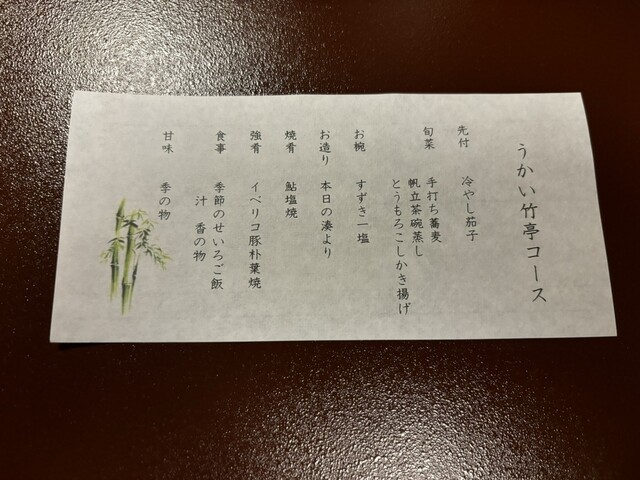 うかい竹亭コース
先付　冷やし茄子
旬菜　手打ち蕎麦
帆立茶碗蒸し
とうもろこしかき揚げ
お椀　すずき一塩
お造り　本日の湊より
焼肴　鮎塩焼
強肴　イベリコ豚朴葉焼
食事　季節のせいろご飯
汁　香の物
甘味　季の物